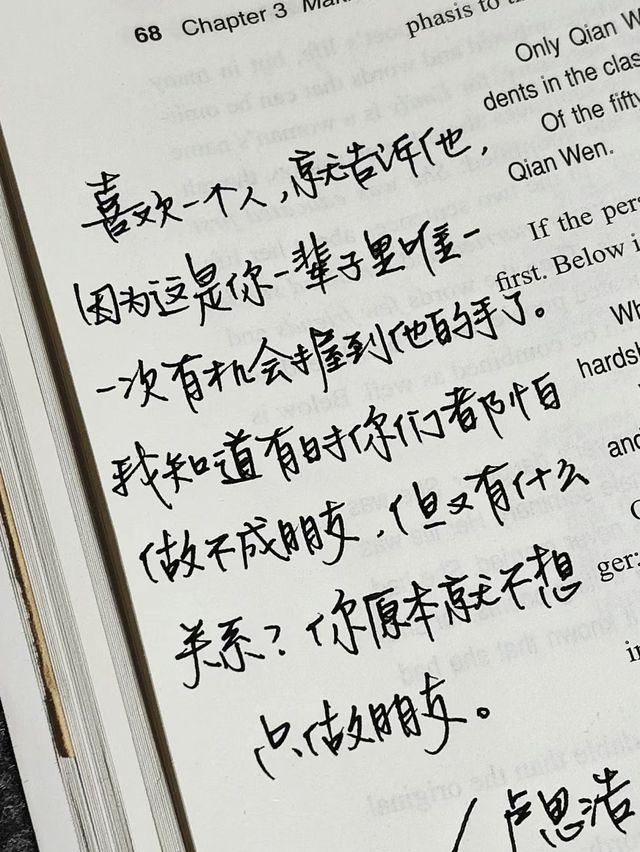 68 Chapter 3
phasis to
Only Qian
dents in the
Of the fifty
Qian Wen.
If the
first. Below
hardsh
and
ger:
喜欢一个人，就告诉他，
因为这是你一辈子里唯一
一次有机会握到他的手了。
我知道有时你们都怕
做不成朋友，但又有什么
关系？你原本就不想
只做朋友。
/卢思浩